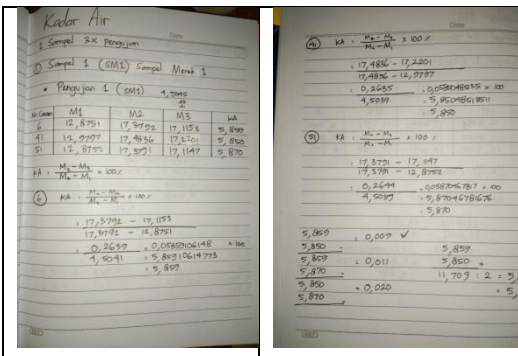 Kadar Air
1 Sampel 3x pengujian
① Sampel 1 (SM1) Sampel Merah 1
• Pengujian 1 (SM1)
No Cawan M1 M2 M3 KA
6 12,8751 17,3792 17,1153 5,859
41 12,9797 17,4836 17,2201 5,850
51 12,8752 17,3791 17,1147 5,870
KA = M2 - M3 / M2 - M1 x 100%
⑥ KA = M2 - M3 / M2 - M1 x 100%
= 17,3792 - 17,1153
17,3792 - 12,8751
= 0,2639 = 0,0585910 6148 x 100
4,5041 = 5,85910614773
= 5,859
Date
㊶ KA = M2 - M3 / M2 - M1 x 100%
= 17,4836 - 17,2201
17,4836 - 12,9797
= 0,2635
4,5039
= 5,850
(51) KA = M2 - M3 / M2 - M1 x 100%
= 17,3791 - 17,1147
17,3791 - 12,8752
= 0,2644
4,5039 = 5,87046781676
= 5,870
5,859
5,850 - = 0,009 ✓
5,859
5,870 - = 0,011
5,850
5,870 - = 0,020
5,859
5,850 +
11,709 : 2 = 5,
= 5,